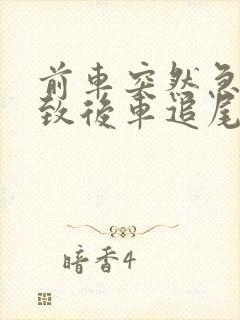 前車突然急
致後車追尾
暗香4